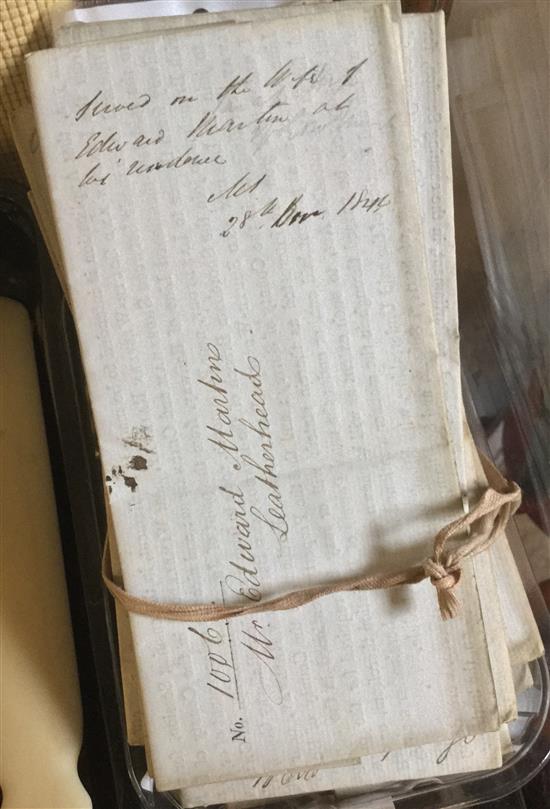 Served on the Wife of
Edward Martin at
his residence
28th Novr 1844
No. 1006.
Mr Edward Martin
Leatherhead